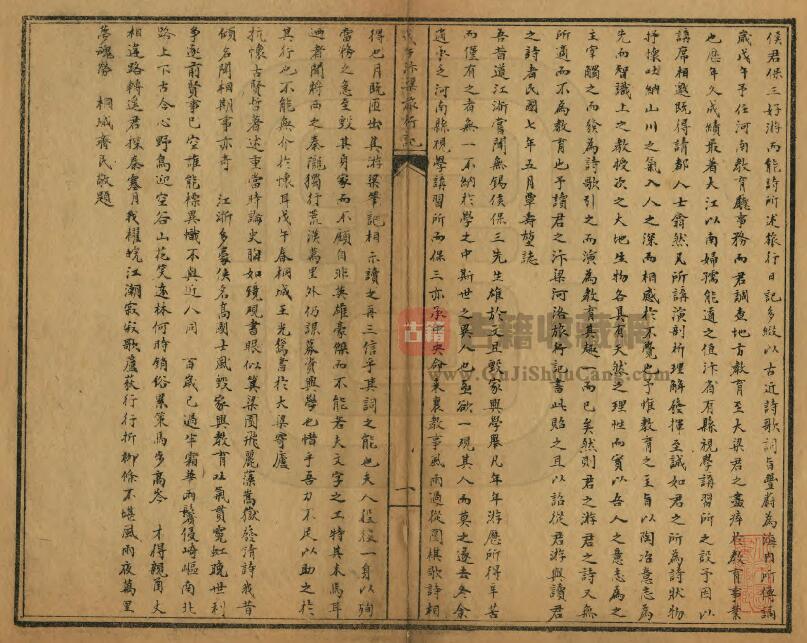 侯君保三好游而能詩所述旅行日記多綴以古近詩歌詞旨豐蔚為海內所傳誦
歲戊午予任河南教育廳事務而君調查地方教育至大梁君之盡瘁於教育事業
也歷年久成績最著大江以南婦孺能道之值汴省有縣視學講習所之設予因以
講席相邀既得請都人士翕然凡所講演剖析理解發揮至誠如君之所為詩狀物
抒懷吐納山川之氣入人之深而相感於不覺也予惟教育之主旨以陶冶意志為
先而智識上之教授次之大地生物各具有天然之理性而實以吾人之意志為之
主宰觸之而發為詩歌引之而演為教育其趣一而已矣然則君之游君之詩又無
所適而不為教育也予讀君之汴梁河洛旅行記書此貽之且以諗從君游與讀君
之詩者民國七年五月覃壽堃誌
吾昔道江浙嘗聞無錫侯保三先生雄於文且毀家興學舉凡年年游歷所得辛苦
而僅有之者無一不納於學之中斯世之異人也亟欲一現其人而莫之遂去冬余
適承乏河南縣視學講習所而保三亦承中央命來襄教事風雨過從圍棋歌詩相
汴梁旅行記
一
得也月既匝出其游梁筆記相示讀之再三信乎其詞之能也夫人役役一身以殉
當務之急至毀其身家而不顧自非英雄豪傑而不能若夫文字之工特其末焉耳
迺者聞將西之秦隴獨行荒漠萬里外仍謀募資興學也惜乎吾力不足以助之於
其行也不能無介於懷耳戊午春桐城王光鸞書於大梁寄廬
抗懷古賢哲著述重當時論史胸如鏡觀書眼似箕梁園飛麗藻嵩嶽發清詩我昔
傾名聞相期事亦奇　江浙多豪俠名高國士風毀家興教育吐氣貫霓虹晚世利
爭逐前賢事已空誰能標異幟不與近人同　百歲已過半霜華兩鬢侵崎嶇南北
路上下古今心野鳥迎空谷山花笑遠林何時銷俗累策馬多高岑　才得親函丈
相違路轉遙君探秦塞月我櫂皖江潮寂寂歌廬荻行行折柳條不堪風雨夜萬里
夢魂勞　桐城齊民敬題
古籍收藏网
www.GuJiShuCang.com